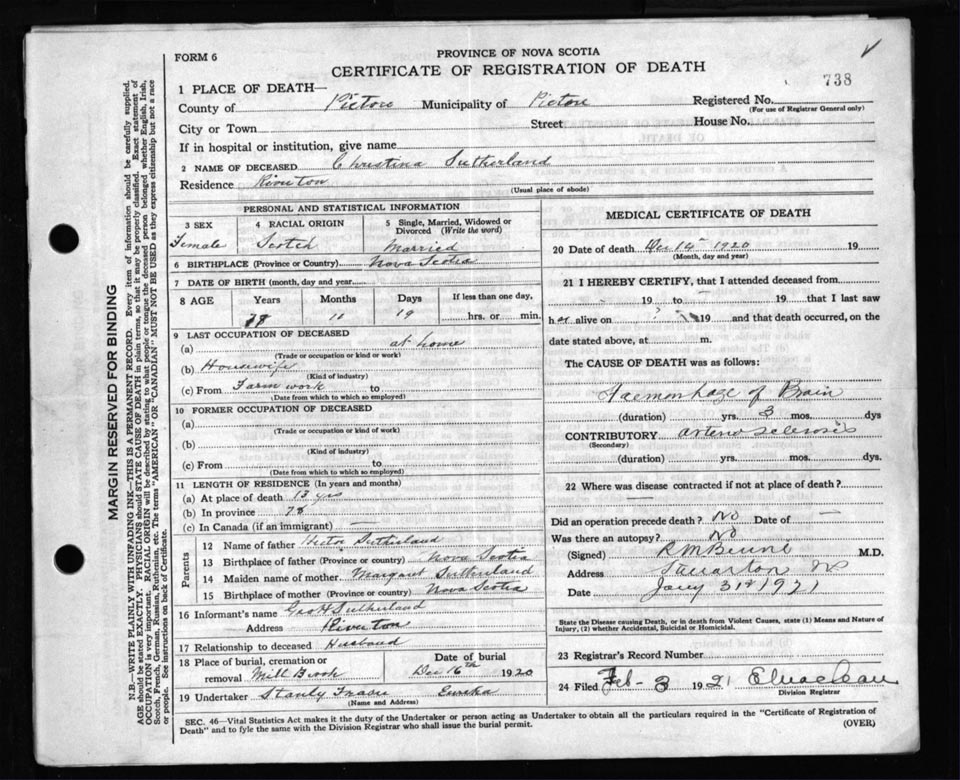 FORM 6
PROVINCE OF NOVA SCOTIA
CERTIFICATE OF REGISTRATION OF DEATH
738
1 PLACE OF DEATH—
County of Pictou Municipality of Pictou Registered No.
(For use of Registrar General only)
City or Town Street House No.
If in hospital or institution, give name
2 NAME OF DECEASED Christina Sutherland
Residence Riverton
(Usual place of abode)
PERSONAL AND STATISTICAL INFORMATION
3 SEX 4 RACIAL ORIGIN 5 Single, Married, Widowed or Divorced (Write the word)
Female Scotch Married
6 BIRTHPLACE (Province or Country) Nova Scotia
7 DATE OF BIRTH (month, day and year)
8 AGE Years Months Days If less than one day,
78 10 19 hrs. or min.
9 LAST OCCUPATION OF DECEASED
(a) at home
(Trade or occupation or kind of work)
(b) Housewife
(Kind of industry)
(c) From Farm work to
(Date from which to which so employed)
10 FORMER OCCUPATION OF DECEASED
(a)
(Trade or occupation or kind of work)
(b)
(Kind of industry)
(c) From to
(Date from which to which so employed)
11 LENGTH OF RESIDENCE (In years and months)
(a) At place of death 13 yrs
(b) In province 78
(c) In Canada (if an immigrant) —
Parents
12 Name of father Hector Sutherland
13 Birthplace of father (Province or country) Nova Scotia
14 Maiden name of mother Margaret Sutherland
15 Birthplace of mother (Province or country) Nova Scotia
16 Informant's name Geo H Sutherland
Address Riverton
17 Relationship to deceased Husband
18 Place of burial, cremation or removal Mill Brook
Date of burial Dec 16th 1920
19 Undertaker Stanly Fraser Eureka
(Name and Address)
MEDICAL CERTIFICATE OF DEATH
20 Date of death Dec 14th 1920 19
(Month, day and year)
21 I HEREBY CERTIFY, that I attended deceased from
19 to 19 that I last saw
her alive on ? 19 and that death occurred, on the
date stated above, at m.
The CAUSE OF DEATH was as follows:
Haemorrhage of Brain
(duration) yrs. 3 mos. dys
CONTRIBUTORY arterio sclerosis
(Secondary)
(duration) yrs. mos. dys.
22 Where was disease contracted if not at place of death?
Did an operation precede death? No Date of —
Was there an autopsy? No
(Signed) M.D.
Address
Date Jany 31st 1921
State the Disease causing Death, or in death from Violent Causes, state (1) Means and Nature of
Injury, (2) whether Accidental, Suicidal or Homicidal.
23 Registrar's Record Number
24 Filed Feb - 3 1921
Division Registrar
SEC. 46—Vital Statistics Act makes it the duty of the Undertaker or person acting as Undertaker to obtain all the particulars required in the "Certificate of Registration of
Death" and to fyle the same with the Division Registrar who shall issue the burial permit. (OVER)
MARGIN RESERVED FOR BINDING
N.B.—WRITE PLAINLY WITH UNFADING INK—THIS IS A PERMANENT RECORD. Every item of information should be carefully supplied.
AGE should be stated EXACTLY. PHYSICIANS should STATE CAUSE OF DEATH in plain terms, so that it may be properly classified. Exact statement of
OCCUPATION is very important. RACIAL ORIGIN will be described by stating to what people or tongue the deceased person belonged whether English, Irish,
Scotch, French, German, Russian, Ruthenian, etc. The terms "AMERICAN" or "CANADIAN" MUST NOT BE USED as they express citizenship but not a race
or people. See instructions on back of Certificate.